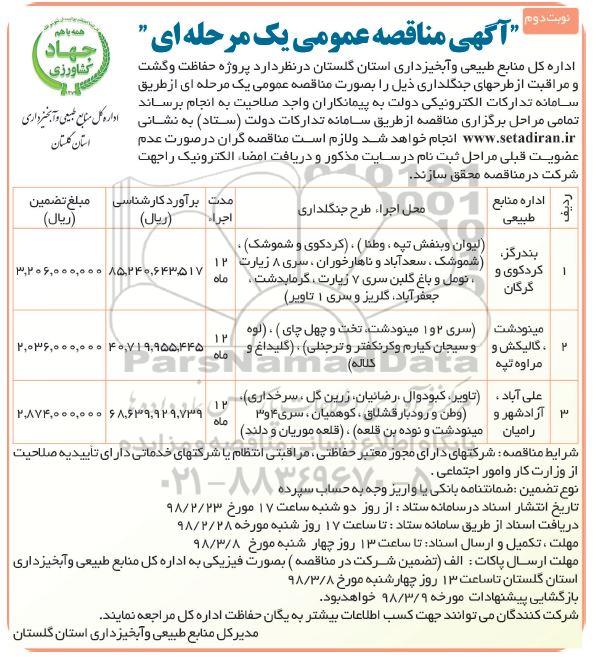 نوبت دوم
"آگهی مناقصه عمومی یک مرحله ای"
همه با هم
جهاد
کشاورزی
اداره کل منابع طبیعی و آبخیزداری
استان گلستان
اداره کل منابع طبیعی وآبخیزداری استان گلستان درنظردارد پروژه حفاظت وگشت
و مراقبت ازطرحهای جنگلداری ذیل را بصورت مناقصه عمومی یک مرحله ای ازطریق
سامانه تدارکات الکترونیکی دولت به پیمانکاران واجد صلاحیت به انجام برساند
تمامی مراحل برگزاری مناقصه ازطریق سامانه تدارکات دولت (ستاد) به نشانی
www.setadiran.ir انجام خواهد شد ولازم است مناقصه گران درصورت عدم
عضویت قبلی مراحل ثبت نام درسایت مذکور و دریافت امضاء الکترونیک راجهت
شرکت درمناقصه محقق سازند.
ردیف | اداره منابع طبیعی | محل اجراء طرح جنگلداری | مدت اجراء | برآورد کارشناسی (ریال) | مبلغ تضمین (ریال)
۱ | بندرگز، کردکوی و گرگان | (لیوان وبنفش تپه ، وطنا) ، (کردکوی و شموشک) ، (شموشک ، سعدآباد و ناهارخوران ، سری ۸ زیارت ، نومل و باغ گلبن سری ۷ زیارت ، گرمابدشت ، جعفرآباد، گلریز و سری ۱ تاویر) | ۱۲ ماه | ۸۵,۲۴۰,۶۴۳,۵۱۷ | ۳,۲۰۶,۰۰۰,۰۰۰
۲ | مینودشت ، گالیکش و مراوه تپه | (سری ۲و۱ مینودشت، تخت و چهل چای) ، (لوه و سیجان کیارم وکرنکفتر و ترجنلی) ، (گلیداغ و کلاله) | ۱۲ ماه | ۴۰,۷۱۹,۹۵۵,۴۴۵ | ۲,۰۳۶,۰۰۰,۰۰۰
۳ | علی آباد ، آزادشهر و رامیان | (تاویر، کبودوال ،رضائیان، زرین گل ، سرخداری)، (وطن و رودبارقشلاق ، کوهمیان ، سری۴و۳ مینودشت و نوده بن قلعه) ، (قلعه موریان و دلند) | ۱۲ ماه | ۶۸,۶۳۹,۹۲۹,۷۳۹ | ۲,۸۷۴,۰۰۰,۰۰۰
شرایط مناقصه : شرکتهای دارای مجوز معتبر حفاظتی ، مراقبتی انتظام یا شرکتهای خدماتی دارای تأییدیه صلاحیت
از وزارت کار وامور اجتماعی .
نوع تضمین :ضمانتنامه بانکی یا واریز وجه به حساب سپرده
تاریخ انتشار اسناد درسامانه ستاد : از روز دو شنبه ساعت ۱۷ مورخ ۹۸/۲/۲۳
دریافت اسناد از طریق سامانه ستاد : تا ساعت ۱۷ روز شنبه مورخه ۹۸/۲/۲۸
مهلت ، تکمیل و ارسال اسناد: تا ساعت ۱۳ روز چهار شنبه مورخ ۹۸/۳/۸
مهلت ارسال پاکات : الف (تضمین شرکت در مناقصه ) بصورت فیزیکی به اداره کل منابع طبیعی وآبخیزداری
استان گلستان تاساعت ۱۳ روز چهارشنبه مورخ ۹۸/۳/۸
بازگشایی پیشنهادات مورخه ۹۸/۳/۹ خواهدبود.
شرکت کنندگان می توانند جهت کسب اطلاعات بیشتر به یگان حفاظت اداره کل مراجعه نمایند.
مدیرکل منابع طبیعی وآبخیزداری استان گلستان
ParsNamadData
۰۲۱-۸۸۳۴۹۶۷۰-۵